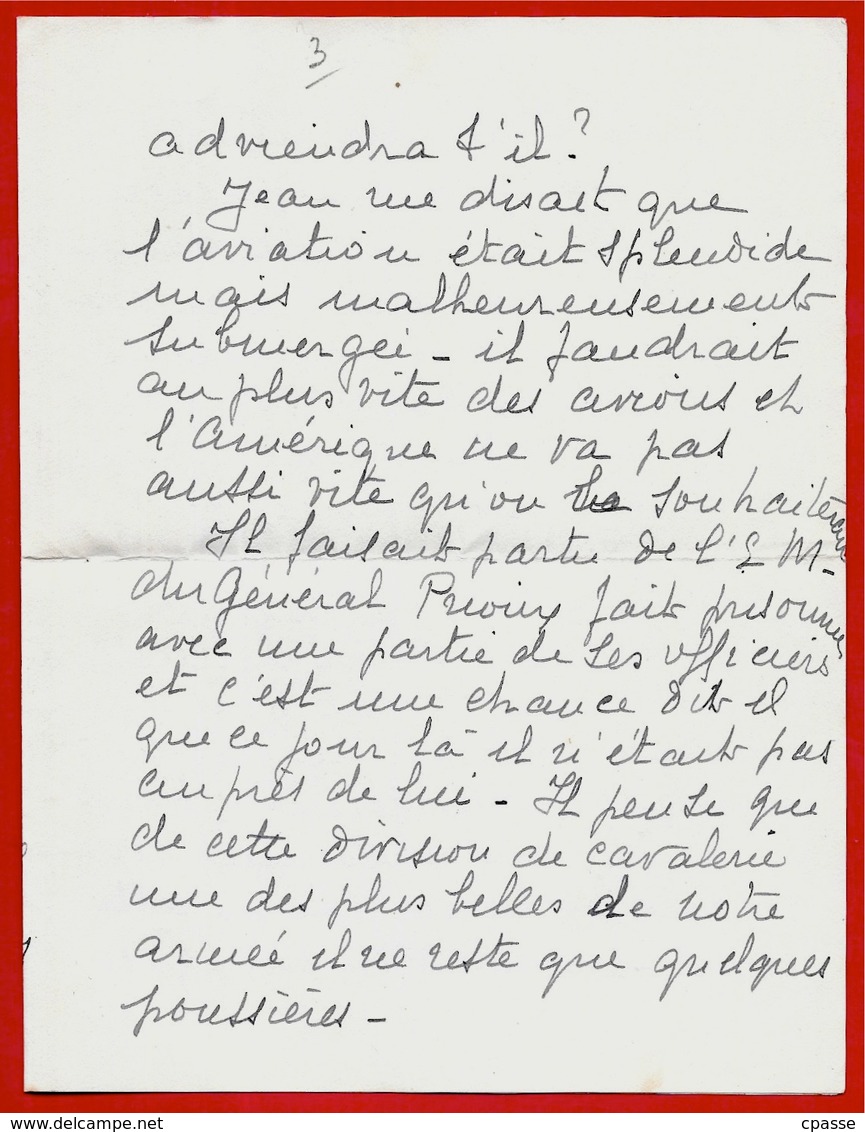 3
adviendra t'il ?
Jean me disait que
l'aviation était splendide
mais malheureusement
submergei - il faudrait
au plus vite des avions et
l'Amérique ne va pas
aussi vite qu'on le souhaiterait
Il faisait partie de l'E M -
du Général Prioux fait prisonnier
avec une partie de ses officiers
et c'est une chance dit il
que ce jour là il n'était pas
auprès de lui - Il pense que
de cette division de cavalerie
une des plus belles de notre
armeé il ne reste que quelques
poussières -
delcampe.net
cpasse